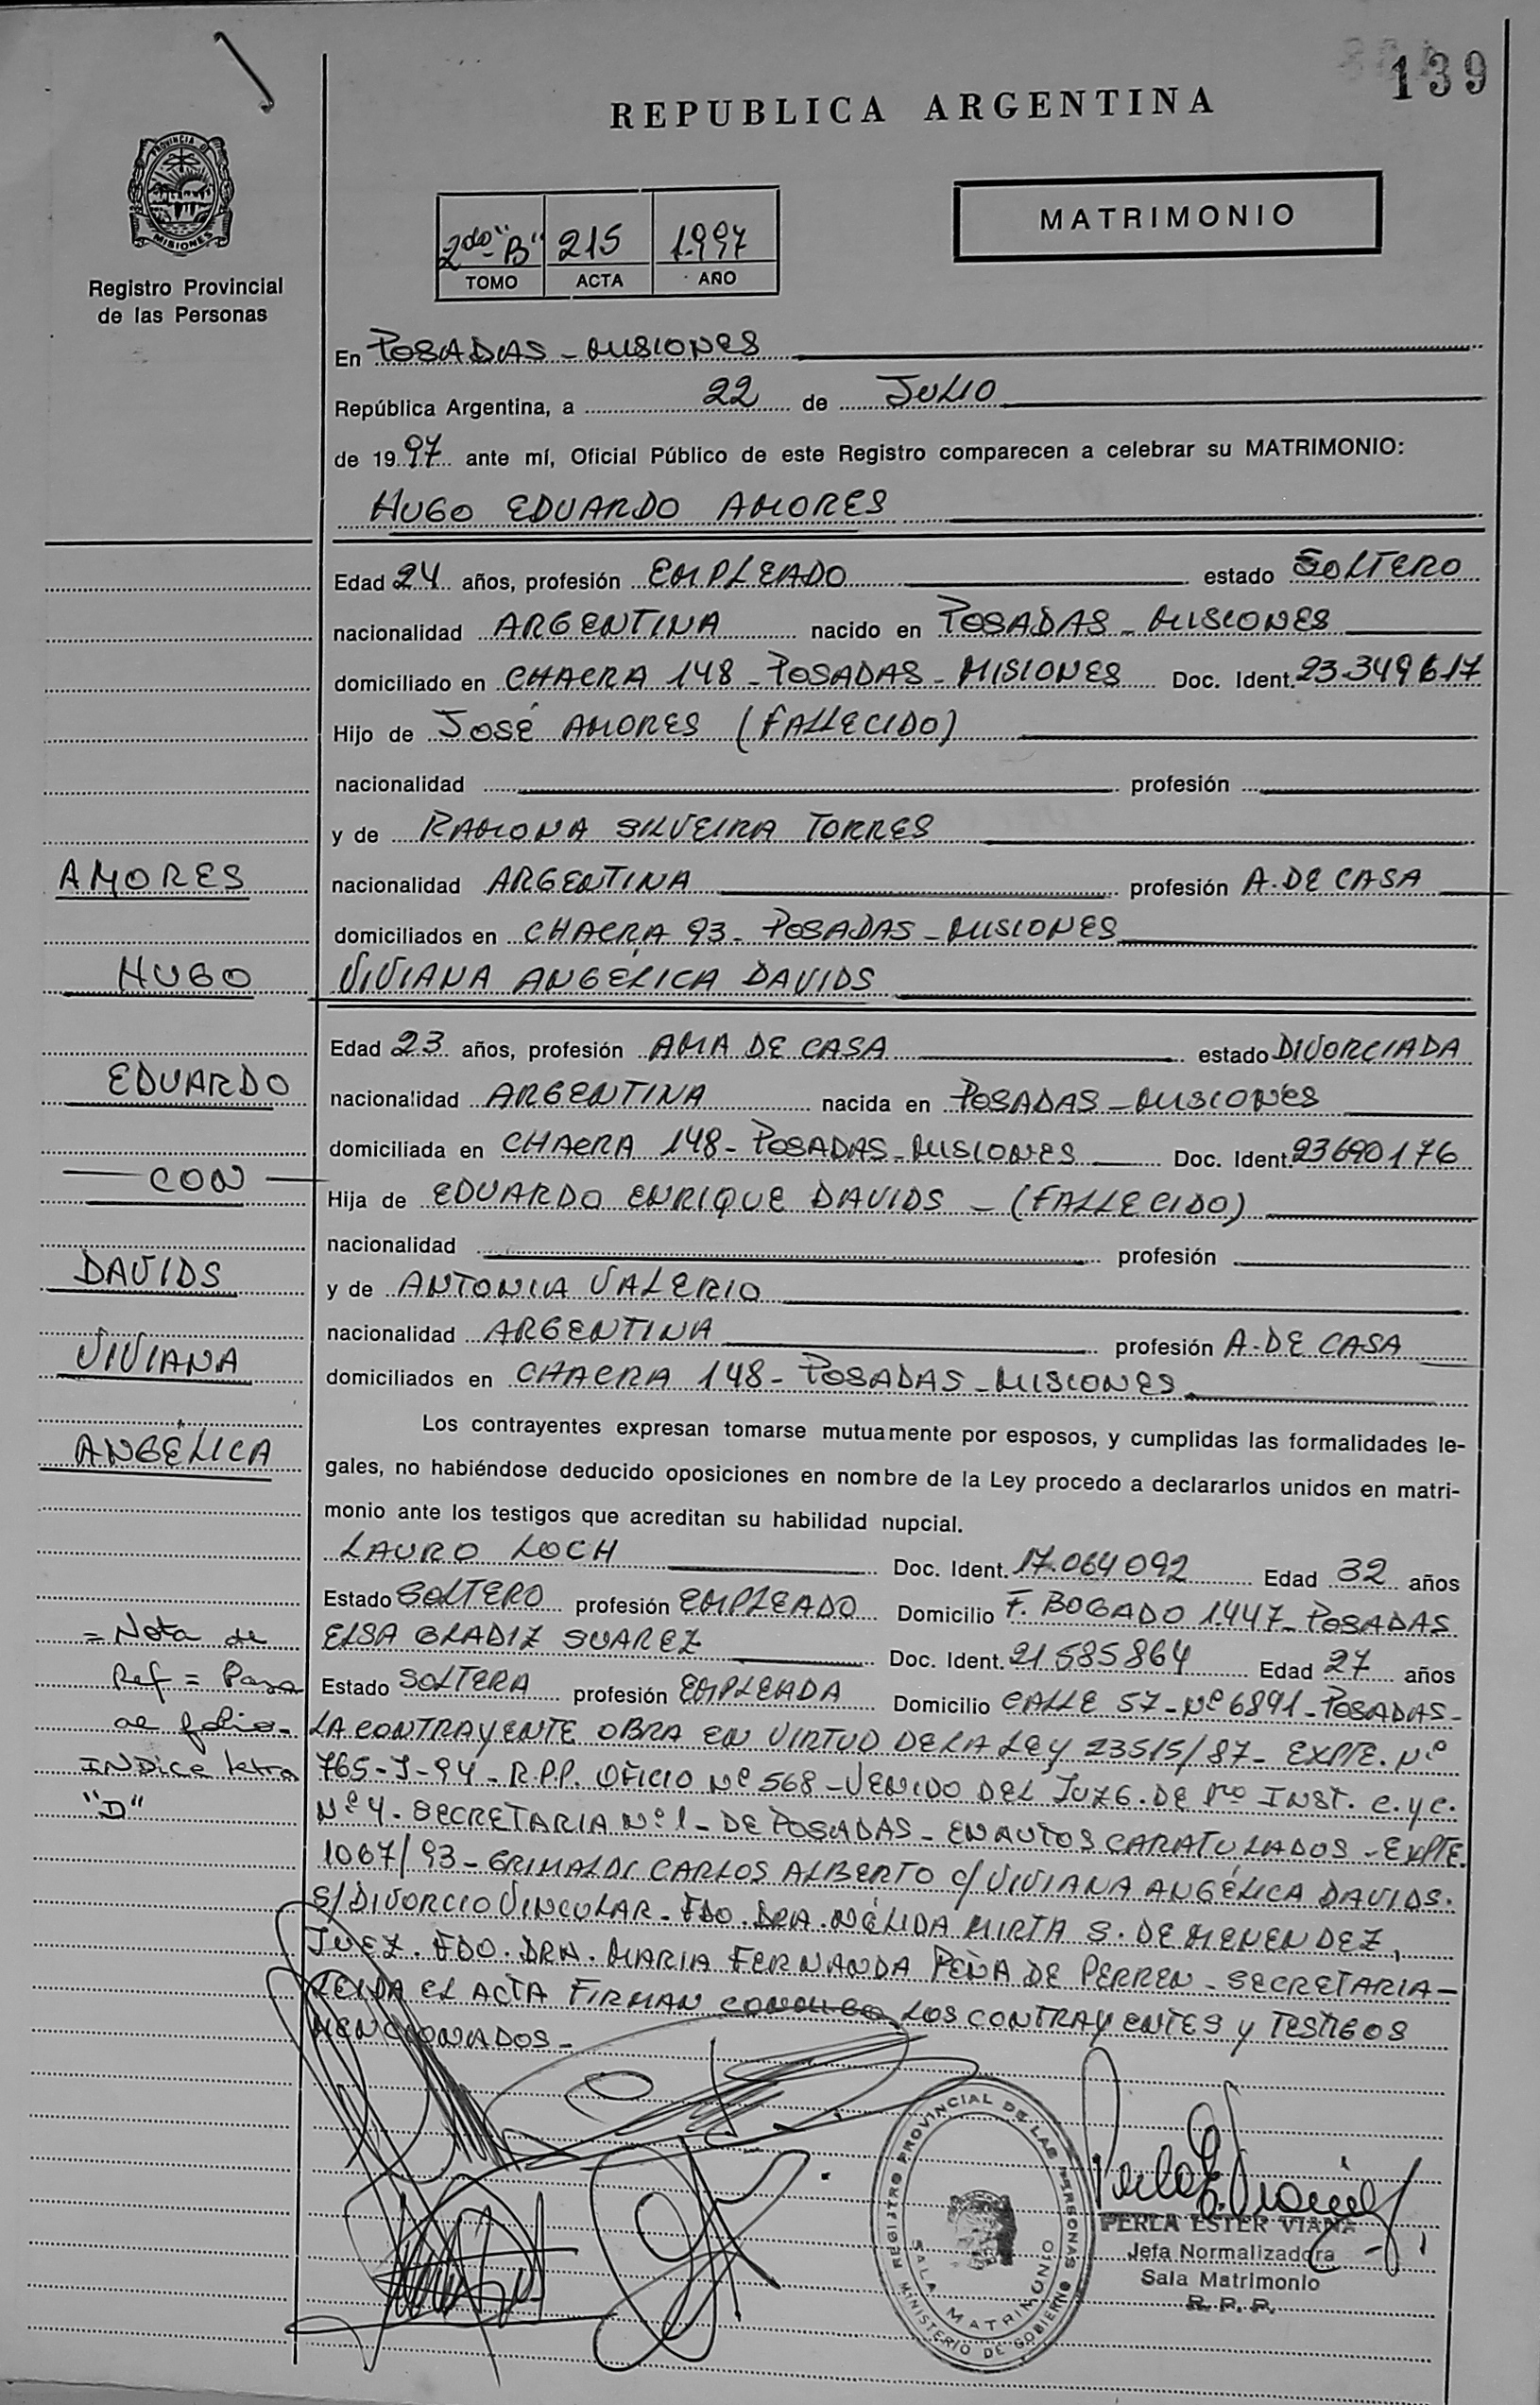 139
REPUBLICA ARGENTINA
PROVINCIA DE
MISIONES
Registro Provincial
de las Personas
MATRIMONIO
2do "B" 215 1997
TOMO ACTA AÑO
En POSADAS - MISIONES
República Argentina, a 22 de JULIO
de 1997 ante mí, Oficial Público de este Registro comparecen a celebrar su MATRIMONIO:
HUGO EDUARDO AMORES
Edad 24 años, profesión EMPLEADO estado SOLTERO
nacionalidad ARGENTINA nacido en POSADAS - MISIONES
domiciliado en CHACRA 148 - POSADAS - MISIONES Doc. Ident. 23.349617
Hijo de JOSÉ AMORES (FALLECIDO)
nacionalidad profesión
y de RAMONA SILVEIRA TORRES
nacionalidad ARGENTINA profesión A. DE CASA
domiciliados en CHACRA 93 - POSADAS - MISIONES
VIVIANA ANGÉLICA DAVIDS
Edad 23 años, profesión AMA DE CASA estado DIVORCIADA
nacionalidad ARGENTINA nacida en POSADAS - MISIONES
domiciliada en CHACRA 148 - POSADAS - MISIONES Doc. Ident. 23690176
Hija de EDUARDO ENRIQUE DAVIDS - (FALLECIDO)
nacionalidad profesión
y de ANTONIA VALERIO
nacionalidad ARGENTINA profesión A. DE CASA
domiciliados en CHACRA 148 - POSADAS - MISIONES
Los contrayentes expresan tomarse mutuamente por esposos, y cumplidas las formalidades le-
gales, no habiéndose deducido oposiciones en nombre de la Ley procedo a declararlos unidos en matri-
monio ante los testigos que acreditan su habilidad nupcial.
LAURO LOCH Doc. Ident. 17.064092 Edad 32 años
Estado SOLTERO profesión EMPLEADO Domicilio F. BOGADO 1447 - POSADAS
ELSA GLADIZ SUAREZ Doc. Ident. 21585864 Edad 27 años
Estado SOLTERA profesión EMPLEADA Domicilio CALLE 57 - Nº 6891 - POSADAS -
LA CONTRAYENTE OBRA EN VIRTUD DE LA LEY 23515/87 - EXPTE. Nº
765 - J - 94 - R.P.P. OFICIO Nº 568 - VENIDO DEL JUZG. DE 1ra INST. C. y C.
Nº 4 - SECRETARIA Nº 1 - DE POSADAS - EN AUTOS CARATULADOS - EXPTE.
1067/93 - GRIMALDI CARLOS ALBERTO C/ VIVIANA ANGÉLICA DAVIDS.
S/ DIVORCIO VINCULAR - FDO. DRA. NÉLIDA MIRTA S. DE MENENDEZ,
JUEZ. FDO. DRA. MARIA FERNANDA PEÑA DE PERREN - SECRETARIA -
LEIDA EL ACTA FIRMAN CONMIGO LOS CONTRAYENTES y TESTIGOS
MENCIONADOS -
AMORES
HUGO
EDUARDO
CON
DAVIDS
VIVIANA
ANGÉLICA
= Nota de
Ref = Pasa
al folio -
INDice letra
"D"
REGISTRO PROVINCIAL DE LAS PERSONAS
SALA MATRIMONIO
MINISTERIO DE GOBIERNO
PERLA ESTER VIANA
Jefa Normalizadora
Sala Matrimonio
R. P. P.